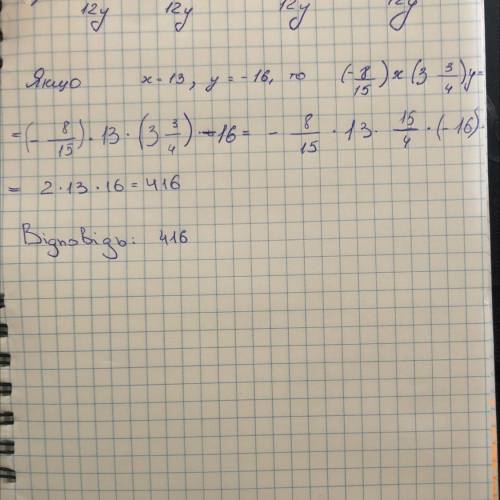 12y 12y 12y 12y
Якщо x-13, y = -16, то (-8/15)x(3 3/4)y=
=(-8/15)·13·(3 3/4)·-16= -8/15·13·15/4·(-16)
= 2·13·16=416
Відповідь: 416